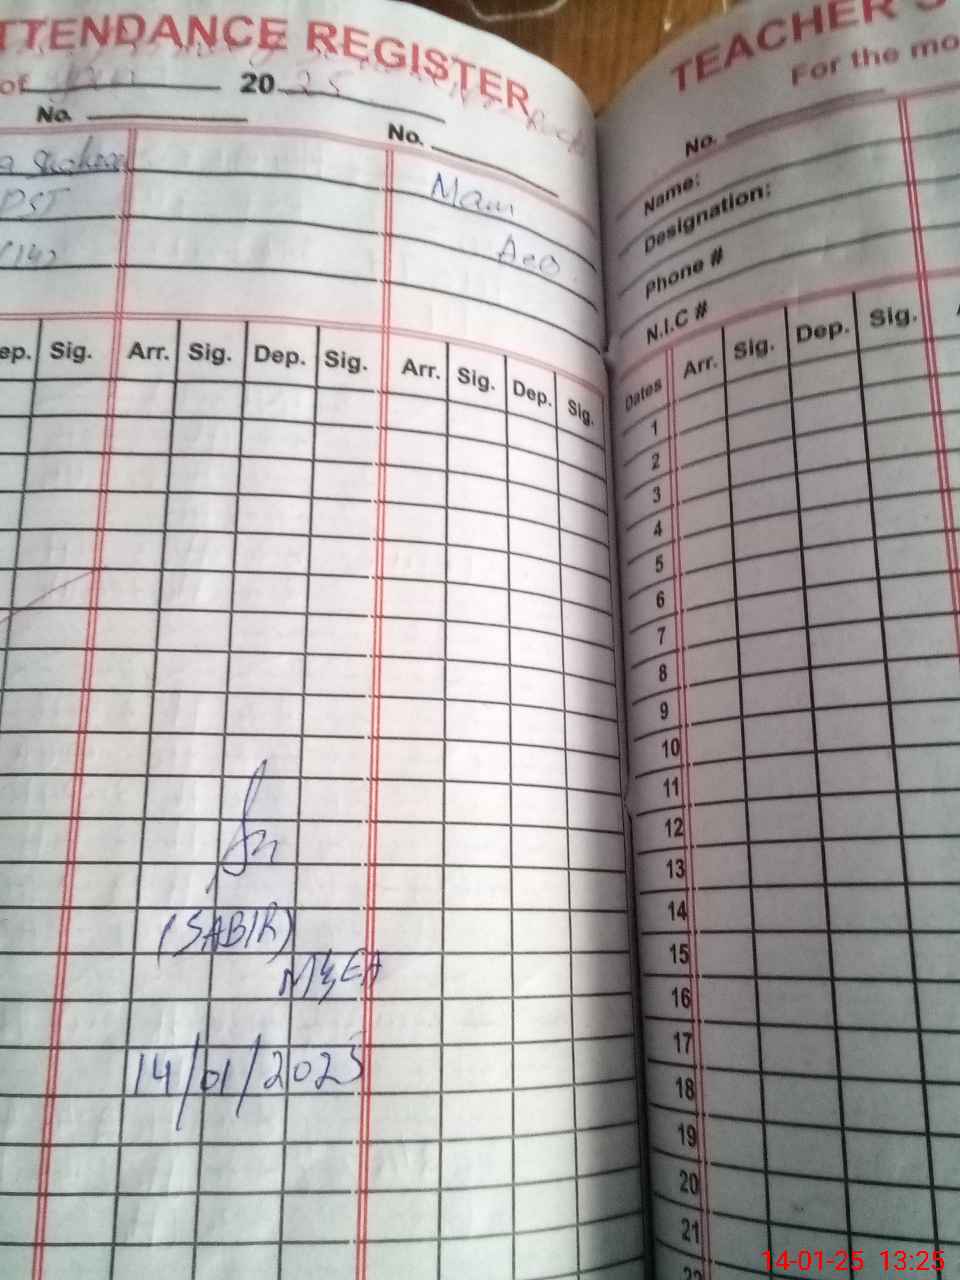 TTENDANCE REGISTER
of 20 25
No.
No.
PST
(14)
Mam
Aeo
ep. Sig. Arr. Sig. Dep. Sig. Arr. Sig. Dep. Sig.
(SABIR)
M&EA
14/01/2025
TEACHER'S
For the mo
No.
Name:
Designation:
Phone #
N.I.C #
Dates Arr. Sig. Dep. Sig.
1
2
3
4
5
6
7
8
9
10
11
12
13
14
15
16
17
18
19
20
21
22
14-01-25 13:25